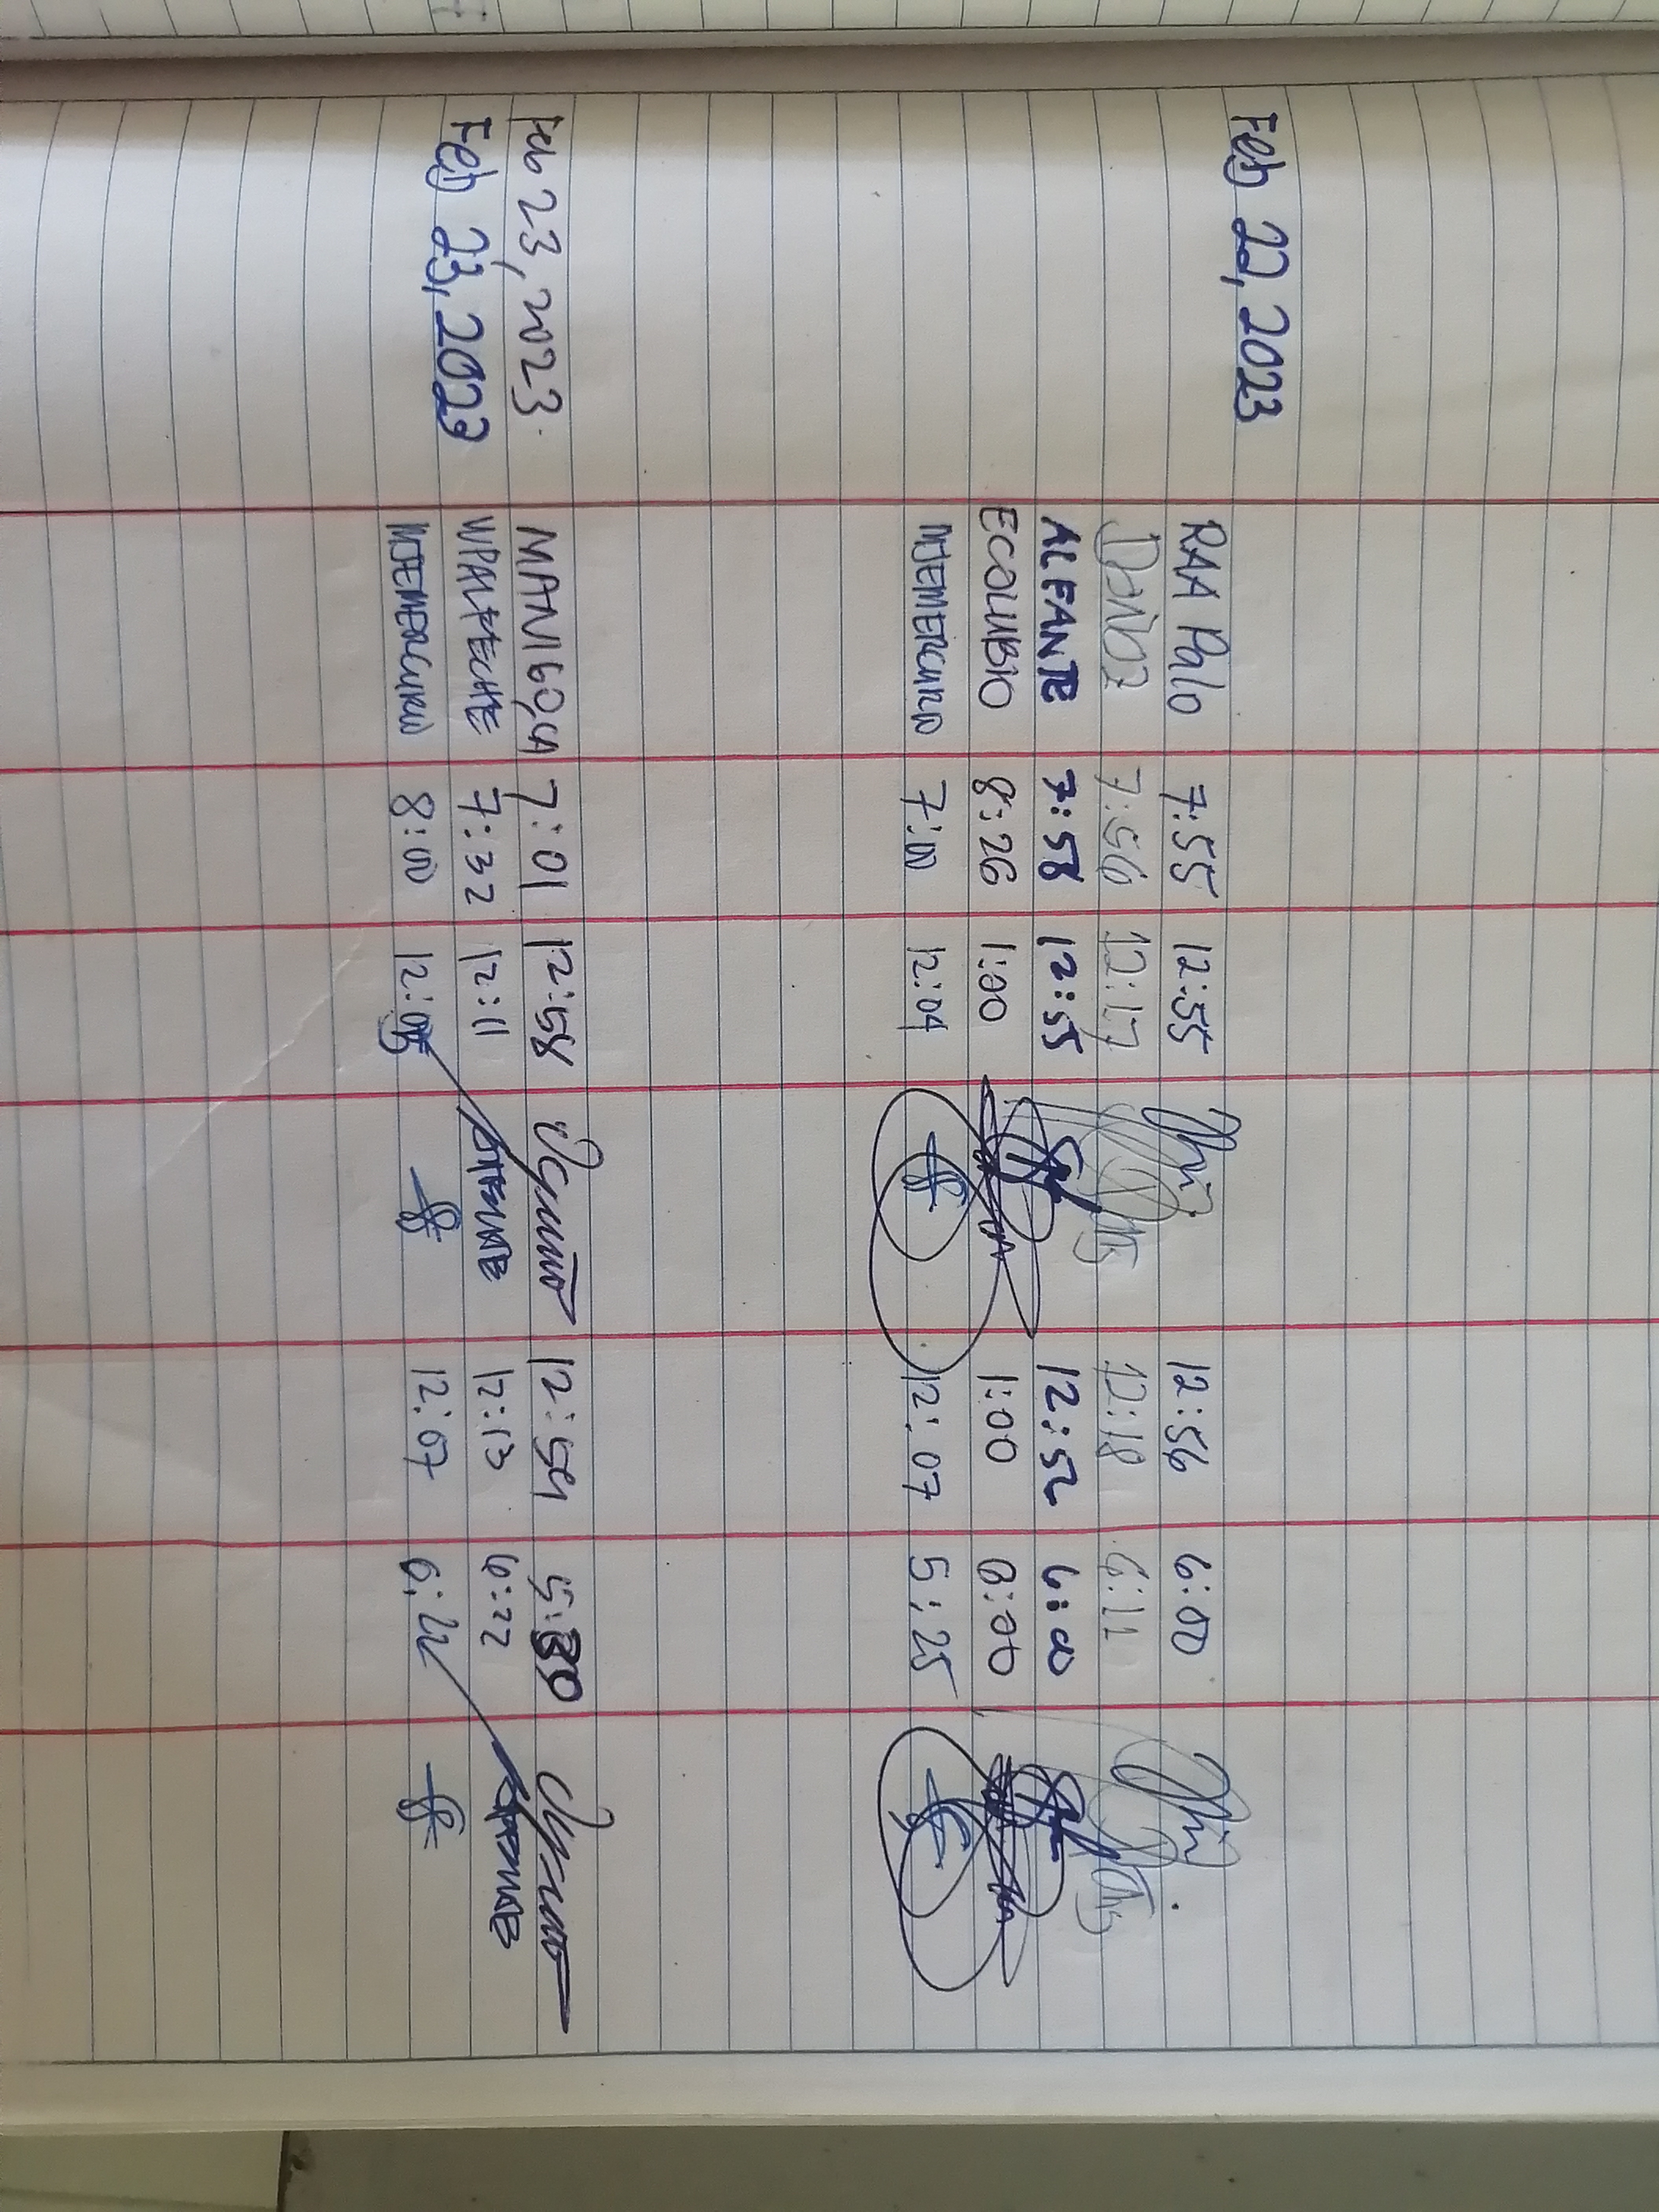 Feb 22, 2023
RAA Palo 7:55 12:55 12:56 6:00
7:56 12:17 12:18 6:11
ALFANTE 7:58 12:55 12:56 6:00
ECOLUBIO 8:26 1:00 1:00 6:00
MJEMERCURIO 7:00 12:04 12:07 5:25
Feb 23, 2023 MANIGO, CA 7:01 12:58 12:59 5:30
Feb 23, 2023 7:32 12:11 12:13 6:22
MJEMERCURIO 8:00 12:07